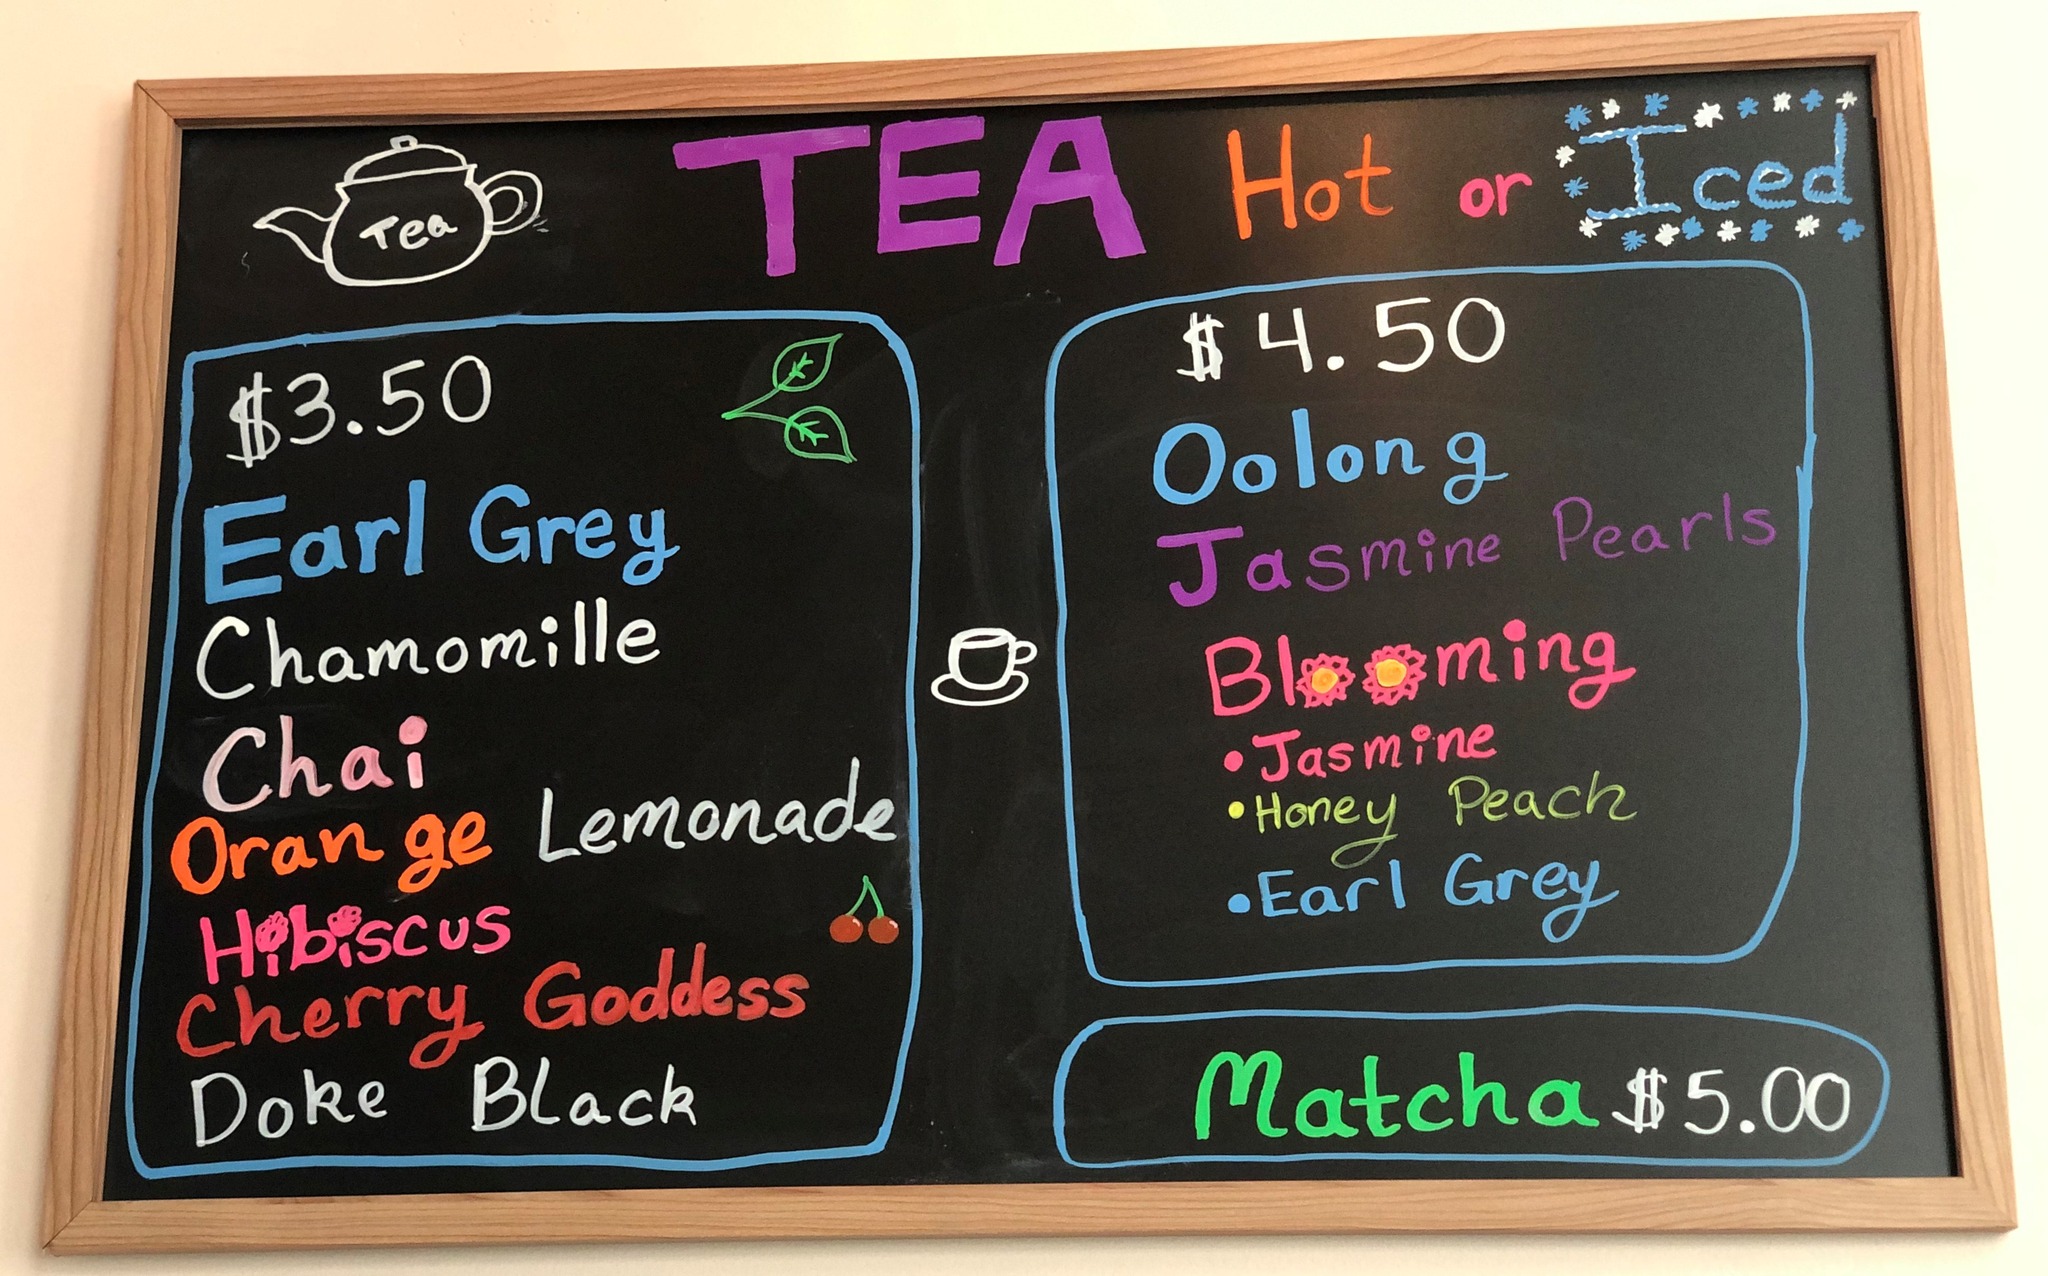 Tea
TEA Hot or Iced
$3.50
Earl Grey
Chamomille
Chai
Orange Lemonade
Hibiscus
Cherry Goddess
Doke Black
$4.50
Oolong
Jasmine Pearls
Blooming
• Jasmine
• Honey Peach
• Earl Grey
Matcha $5.00